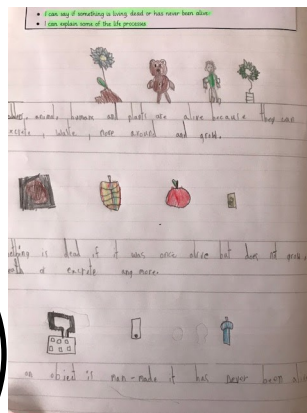 I can say if something is living dead or has never been alive
I can explain some of the life processes
animal, humans and plants are alive because they can
waste, move around and grow.
is dead if it was once alive but does not grow
of excrete any more.
an object is man-made it has never been alive